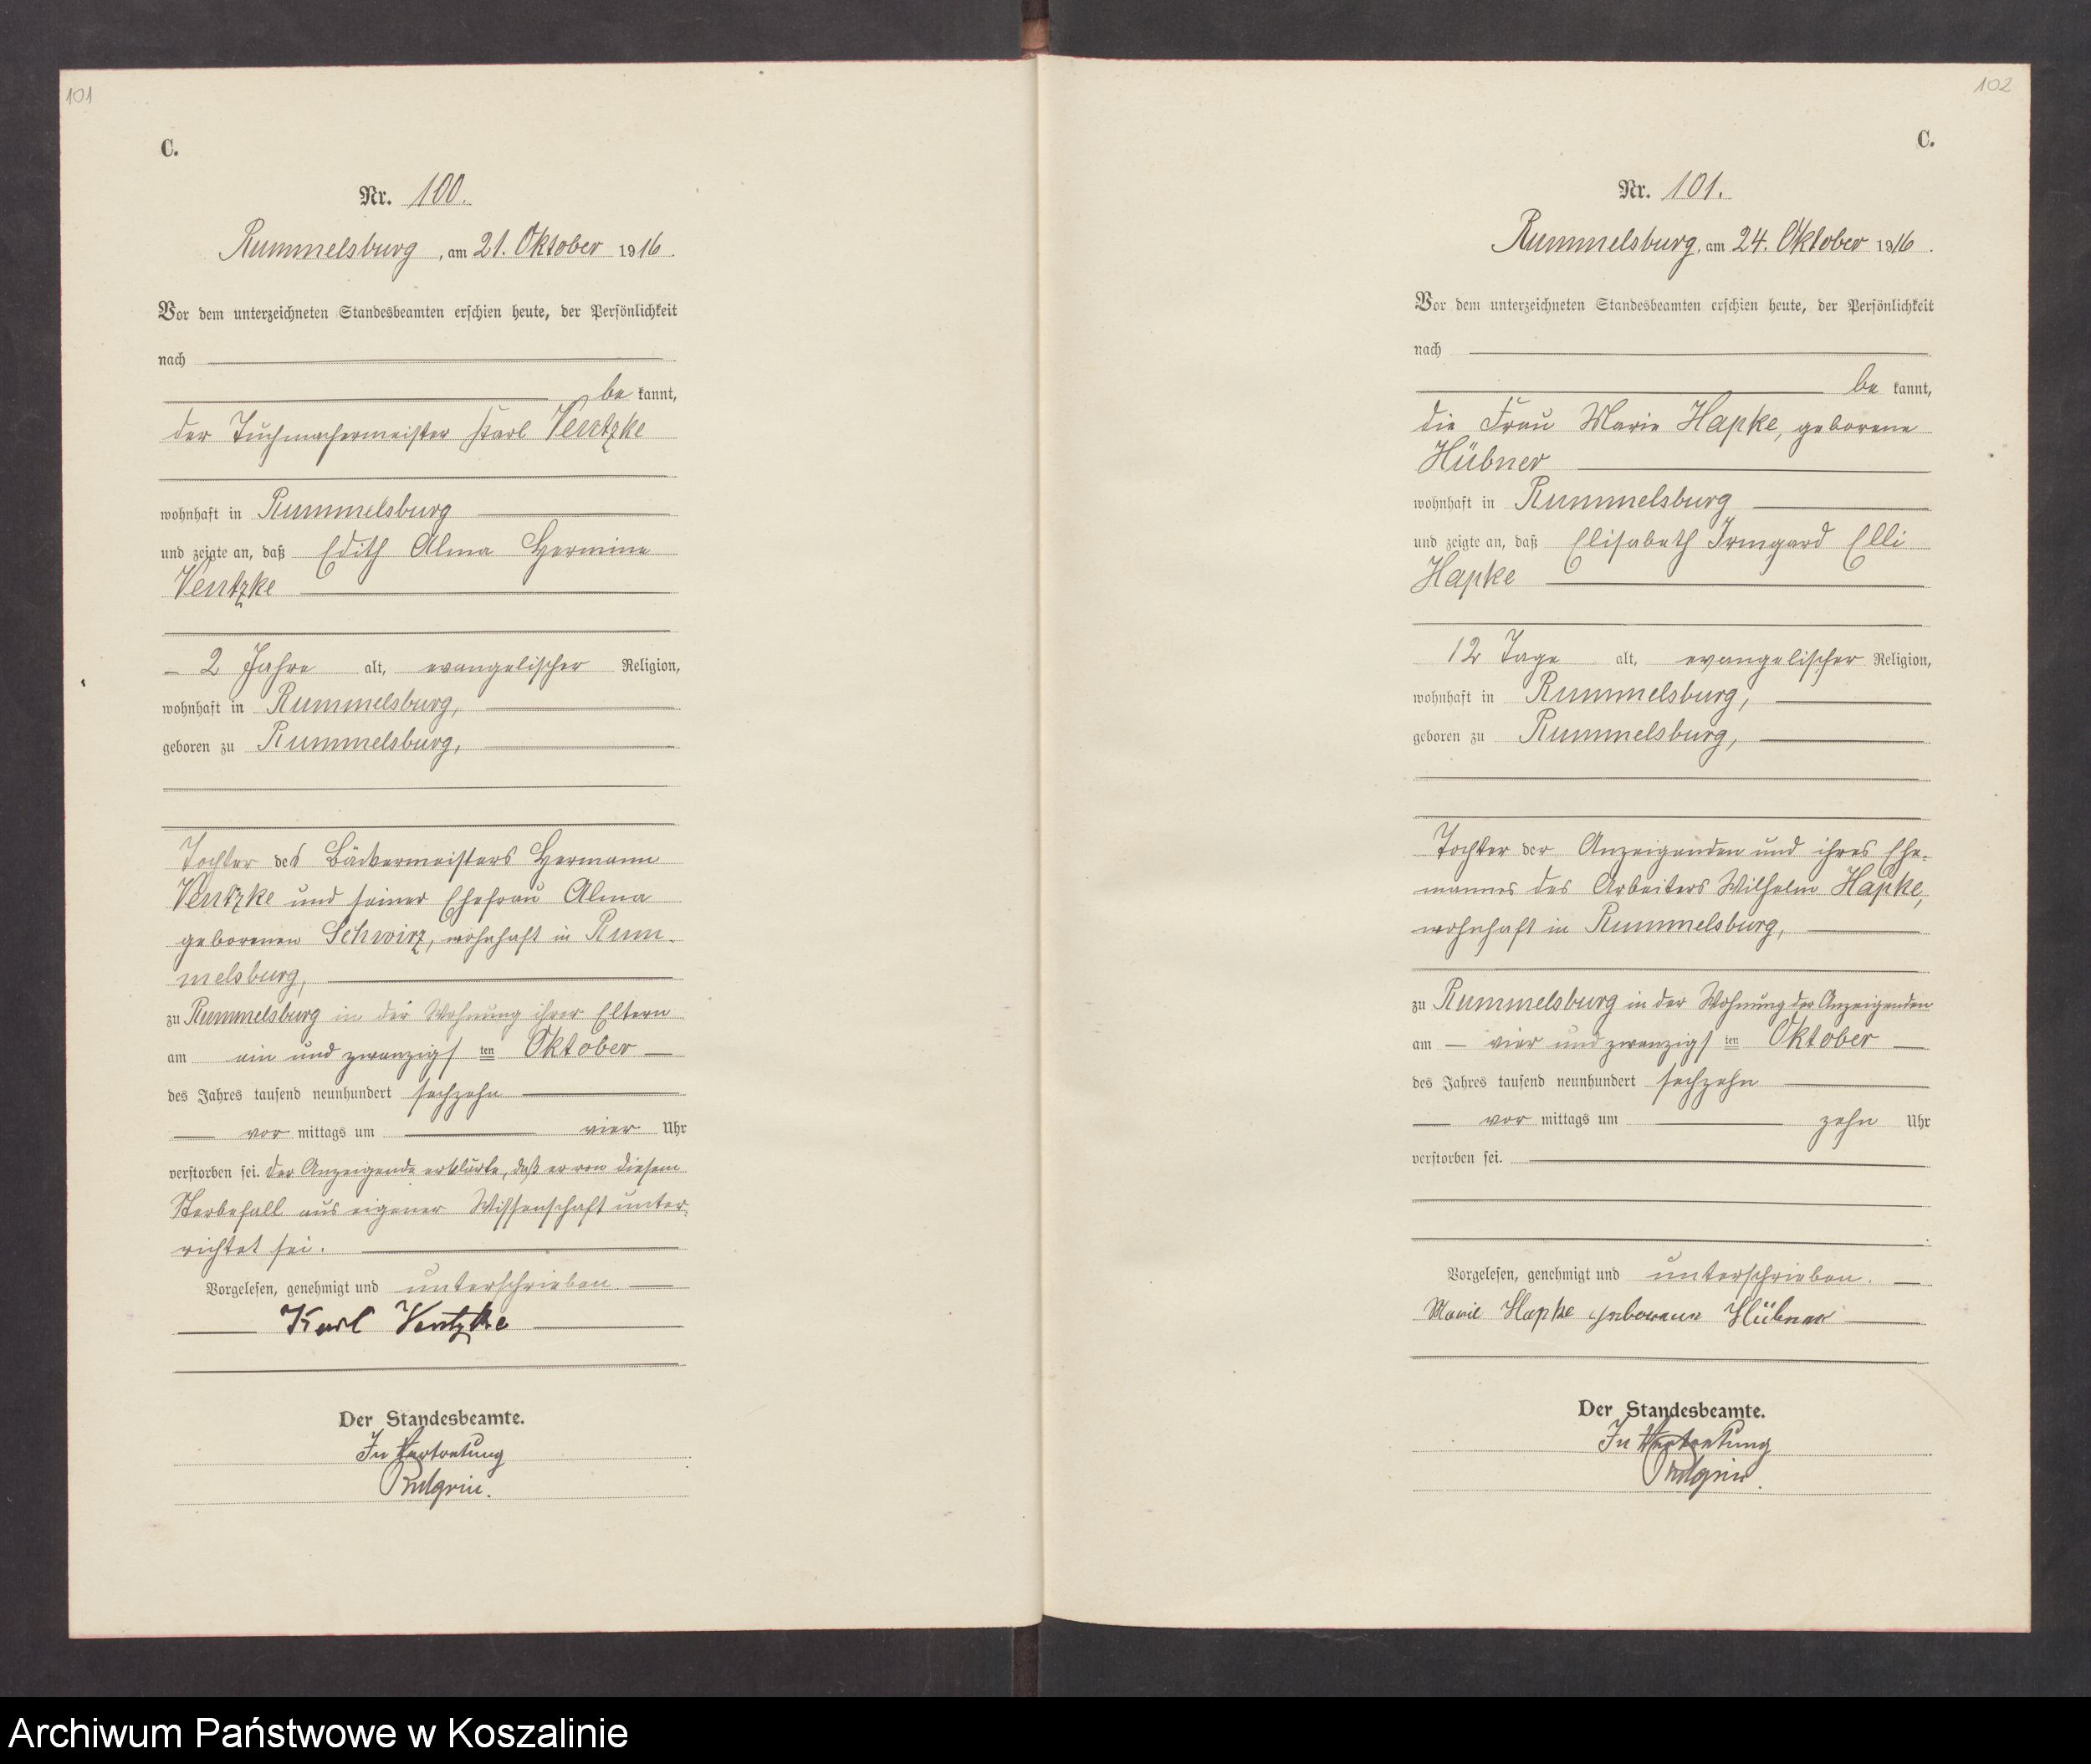 101
C.
Nr. 100.
Rummelsburg, am 21. Oktober 1916.
Vor dem unterzeichneten Standesbeamten erschien heute, der Persönlichkeit
nach
be kannt,
der Tuchmachermeister Karl Ventzke
wohnhaft in Rummelsburg
und zeigte an, daß Edith Alma Hermine
Ventzke
2 Jahre alt, evangelischer Religion,
wohnhaft in Rummelsburg,
geboren zu Rummelsburg,
Tochter des Bäckermeisters Hermann
Ventzke und seiner Ehefrau Alma
geborenen Schwirz, wohnhaft in Rum-
melsburg,
zu Rummelsburg in der Wohnung ihrer Eltern
am ein und zwanzigsten Oktober
des Jahres tausend neunhundert sechzehn
vor mittags um vier Uhr
verstorben sei. Der Anzeigende erklärte, daß er von diesem
Sterbefall aus eigener Wissenschaft unter-
richtet sei.
Vorgelesen, genehmigt und unterschrieben
Karl Ventzke
Der Standesbeamte.
In Vertretung
102
C.
Nr. 101.
Rummelsburg, am 24. Oktober 1916.
Vor dem unterzeichneten Standesbeamten erschien heute, der Persönlichkeit
nach
be kannt,
die Frau Marie Hapke, geborene
Hübner
wohnhaft in Rummelsburg
und zeigte an, daß Elisabeth Irmgard Elli
Hapke
12 Tage alt, evangelischer Religion,
wohnhaft in Rummelsburg,
geboren zu Rummelsburg,
Tochter der Anzeigenden und ihres Ehe-
mannes des Arbeiters Wilhelm Hapke,
wohnhaft in Rummelsburg,
zu Rummelsburg in der Wohnung der Anzeigenden
am vier und zwanzigsten Oktober
des Jahres tausend neunhundert sechzehn
vor mittags um zehn Uhr
verstorben sei.
Vorgelesen, genehmigt und unterschrieben.
Marie Hapke geborene Hübner
Der Standesbeamte.
In Vertretung
Archiwum Państwowe w Koszalinie